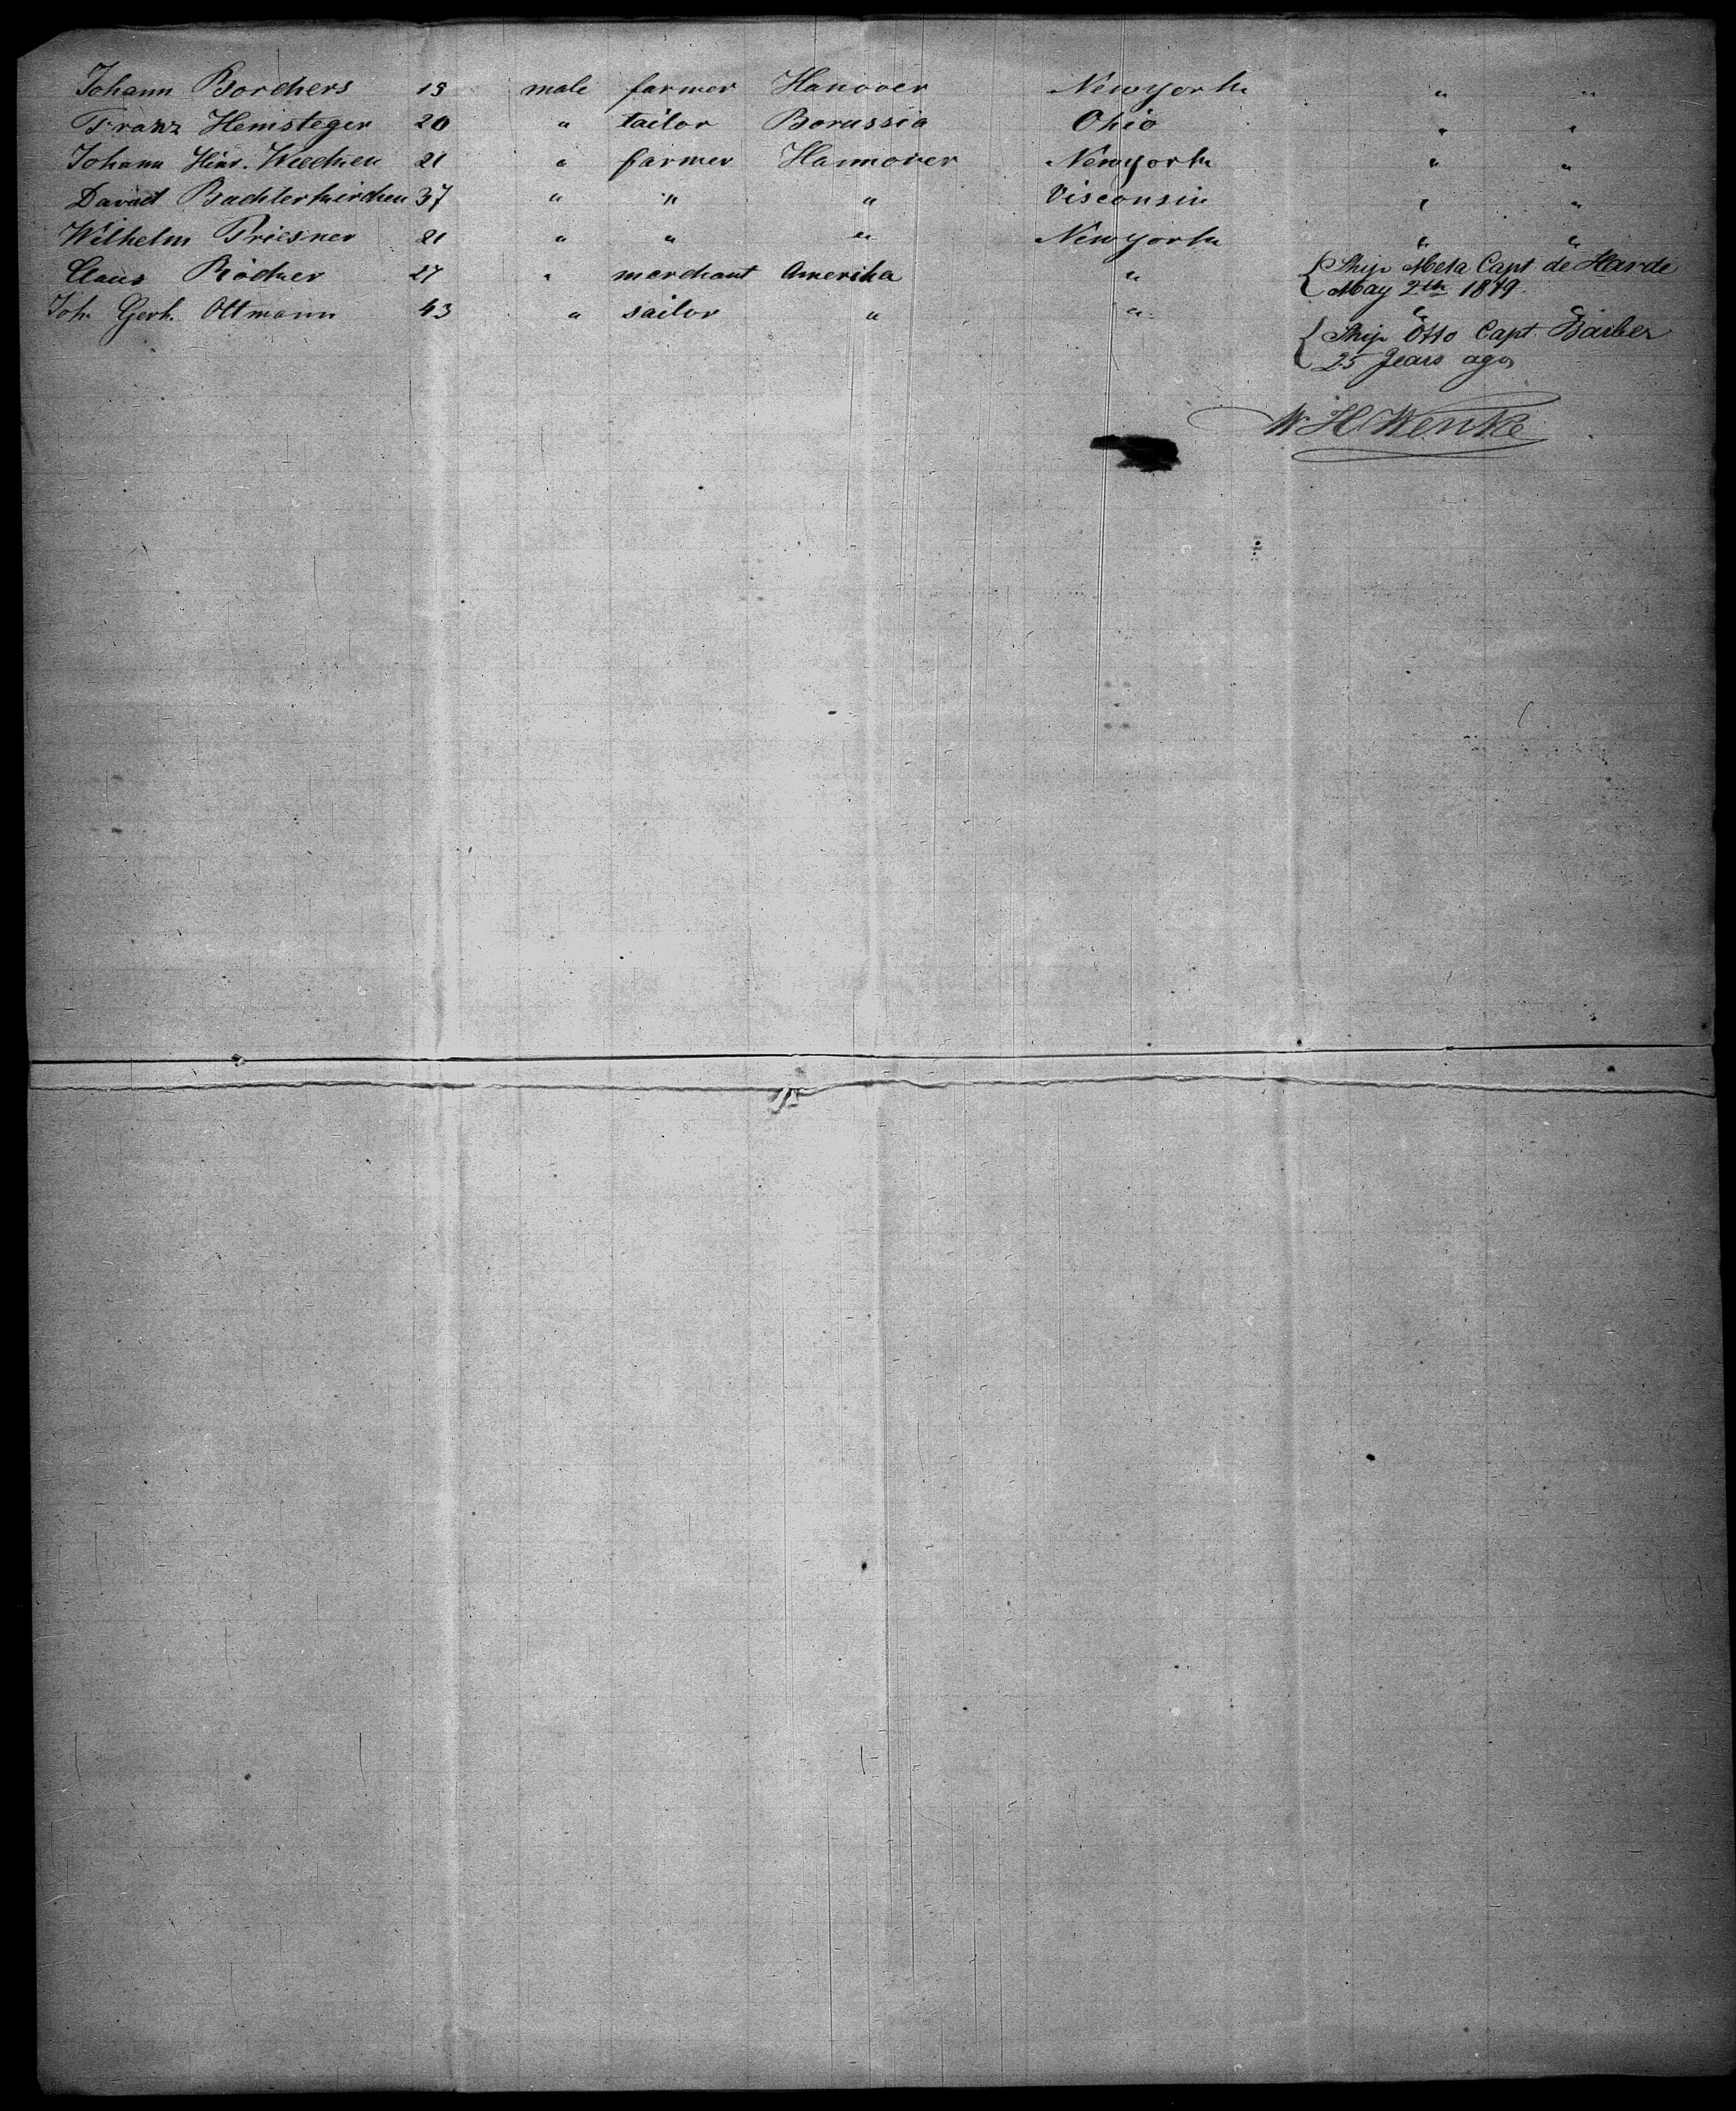 Johann Borchers 19 male farmer Hanover Newyork " "
Franz Hemsteger 20 " tailor Borussia Ohio " "
Johann Hinr. 21 " farmer Hannover Newyork " "
David Bachterkirchen 37 " " " Visconsin " "
Wilhelm Priesner 21 " " " Newyork " "
Claus Rödner 27 " merchant Amerika " { Ship Meta Capt de Harde
May 2th 1849.
Joh. Gerh. Oltmann 43 " sailor " " " "
{ Ship Otto Capt. Barber
25 Jears ago
W. H. Wenke